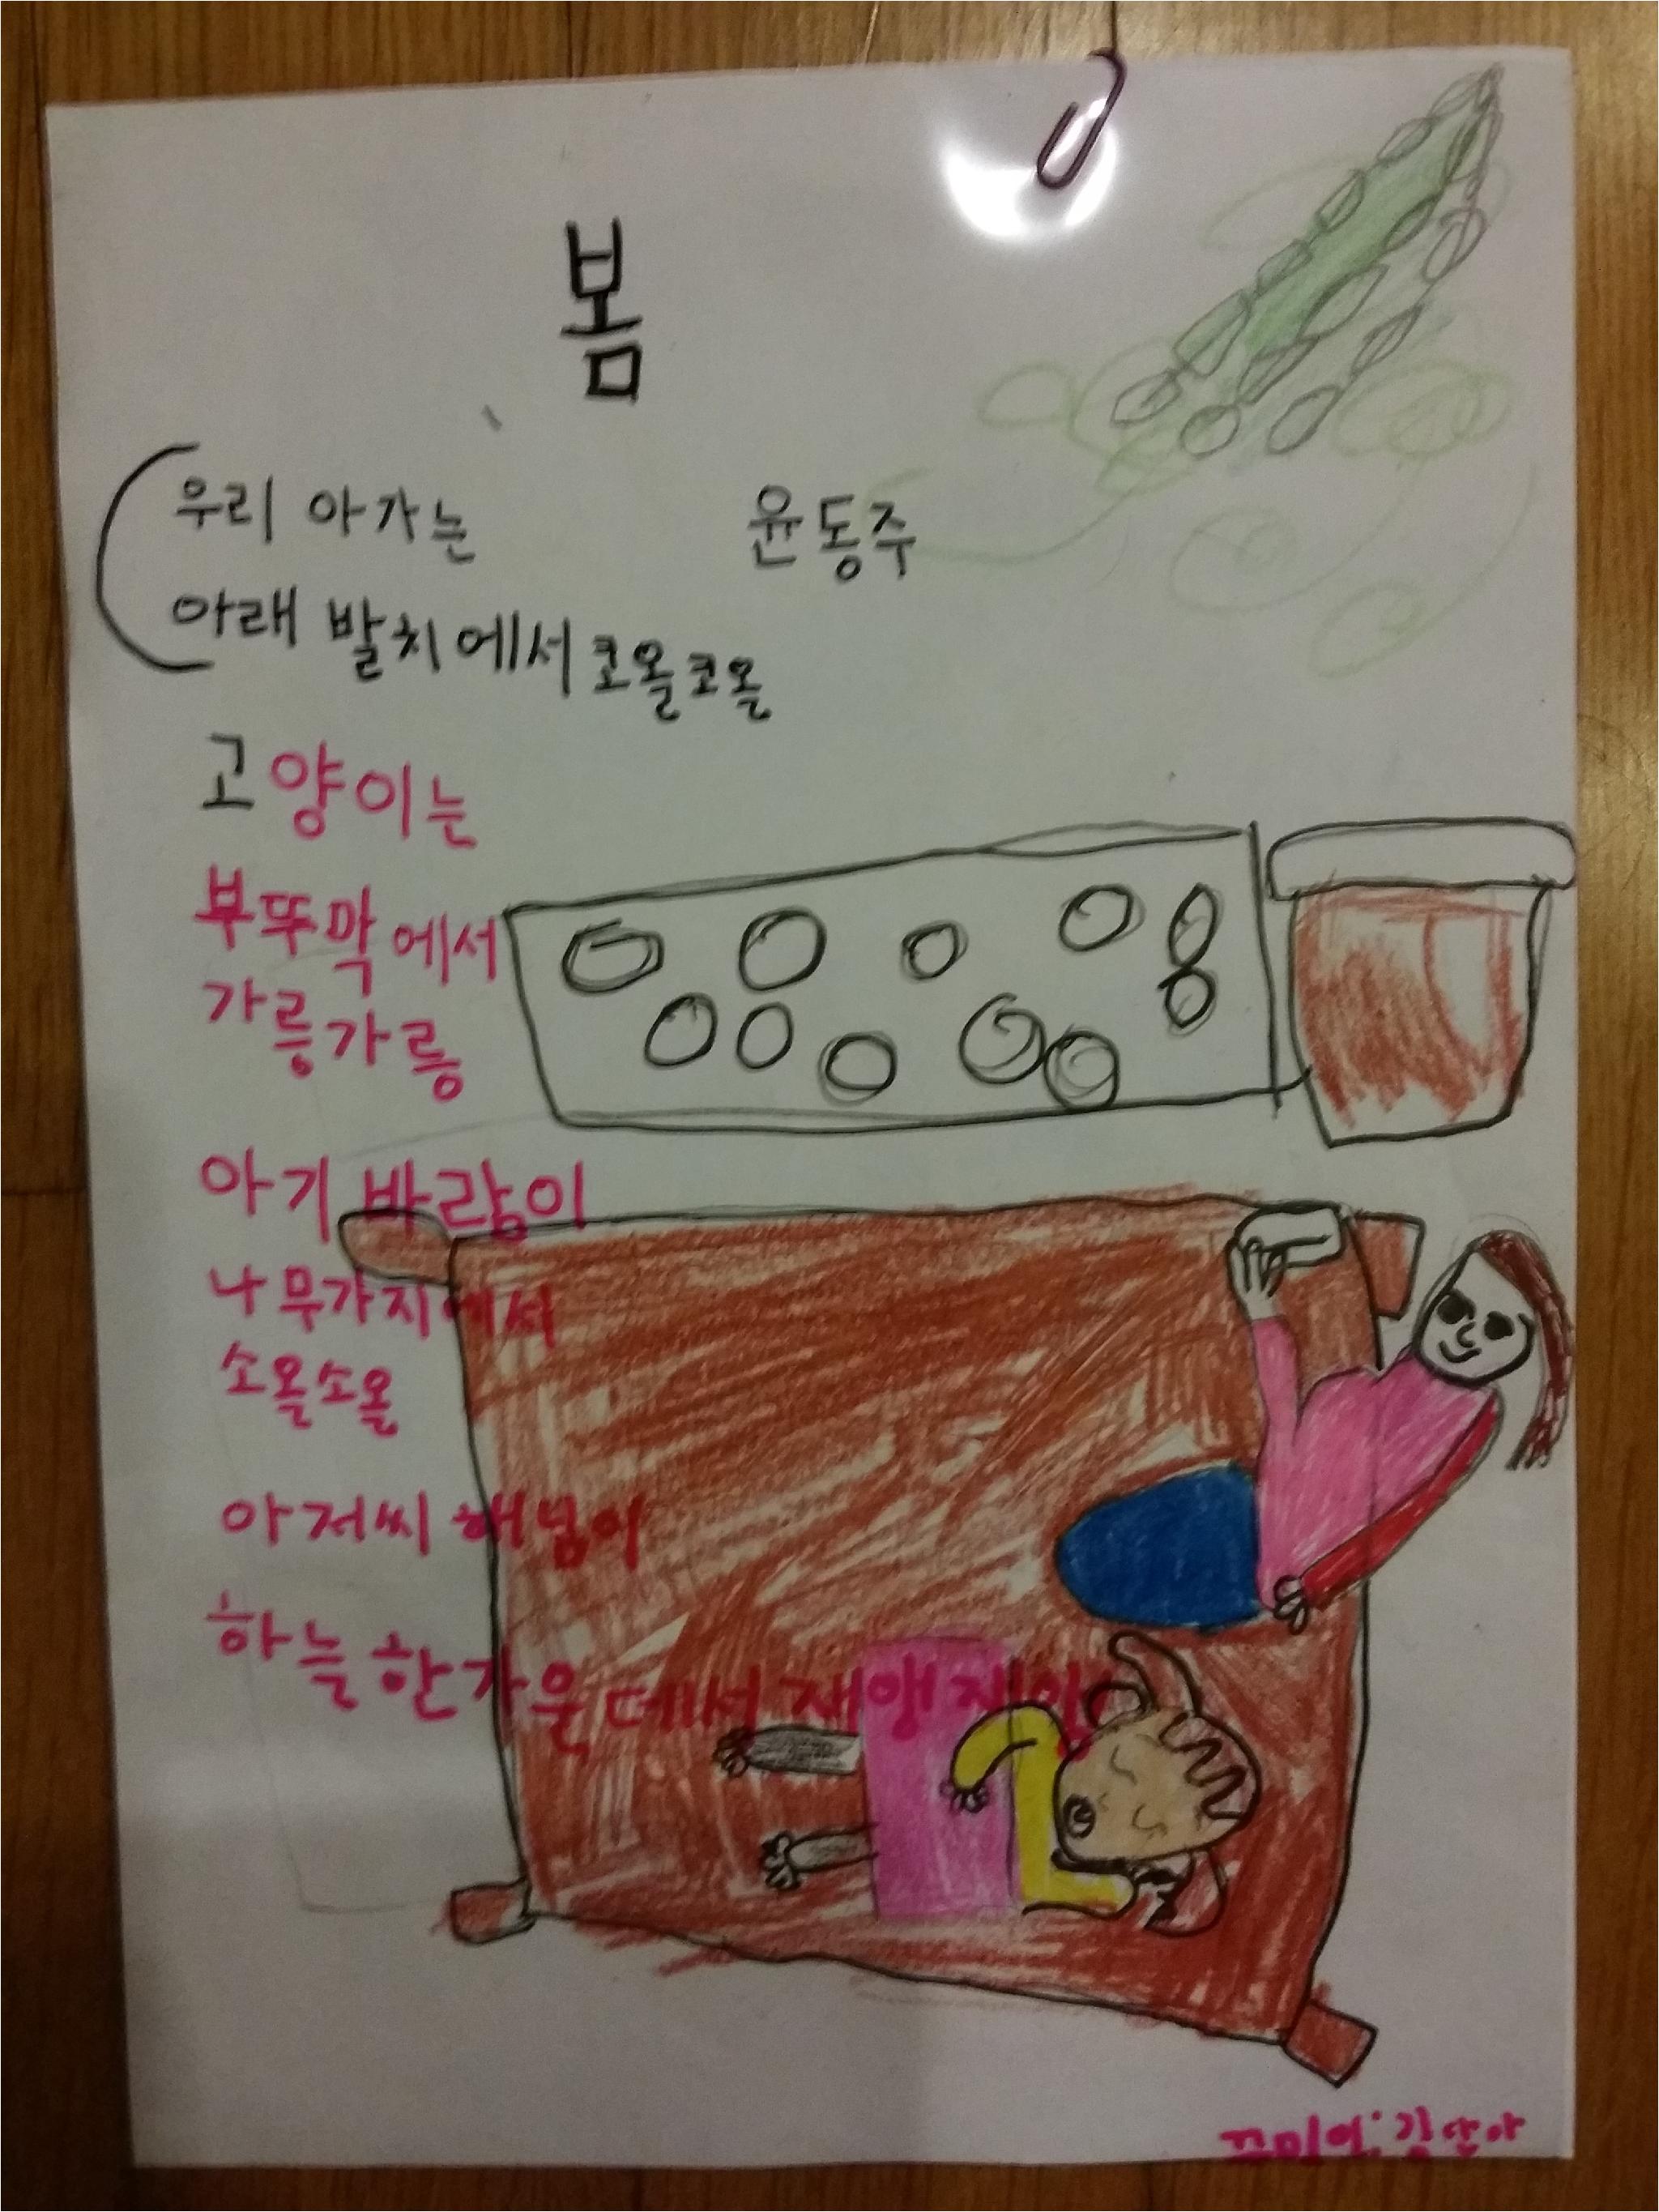 봄
윤동주
우리 아가는
아래 발치에서 코올코올
고양이는
부뚜막에서
가릉가릉
아기 바람이
나무가지에서
소올소올
아저씨 해님이
하늘 한가운데서 재앵재앵
꾸미어: